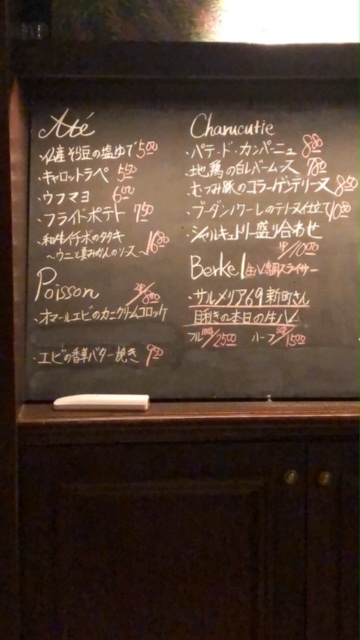 ・仏産そら豆の塩ゆで 500
・キャロットラペ 550
・ウフマヨ 600
・フライドポテト 750
・和牛イチボのタタキ
〜ウニと真みかんのソース〜 1680
Poisson
・オマールエビのカニクリームコロッケ
・エビの香草バター焼き 950
Charcutie
・パテ・ド・カンパーニュ 880
・地鶏の白レバームース 780
・むつみ豚のコラーゲンテリーヌ 850
・ブーダンノワールのテリーヌ仕立て
・シャルキュトリー盛り合わせ
Berkel 生ハム専用スライサー
・サルメリア69 新町さん
目利きの本日の生ハム
フル 100g/2500 ハーフ 50g/1500